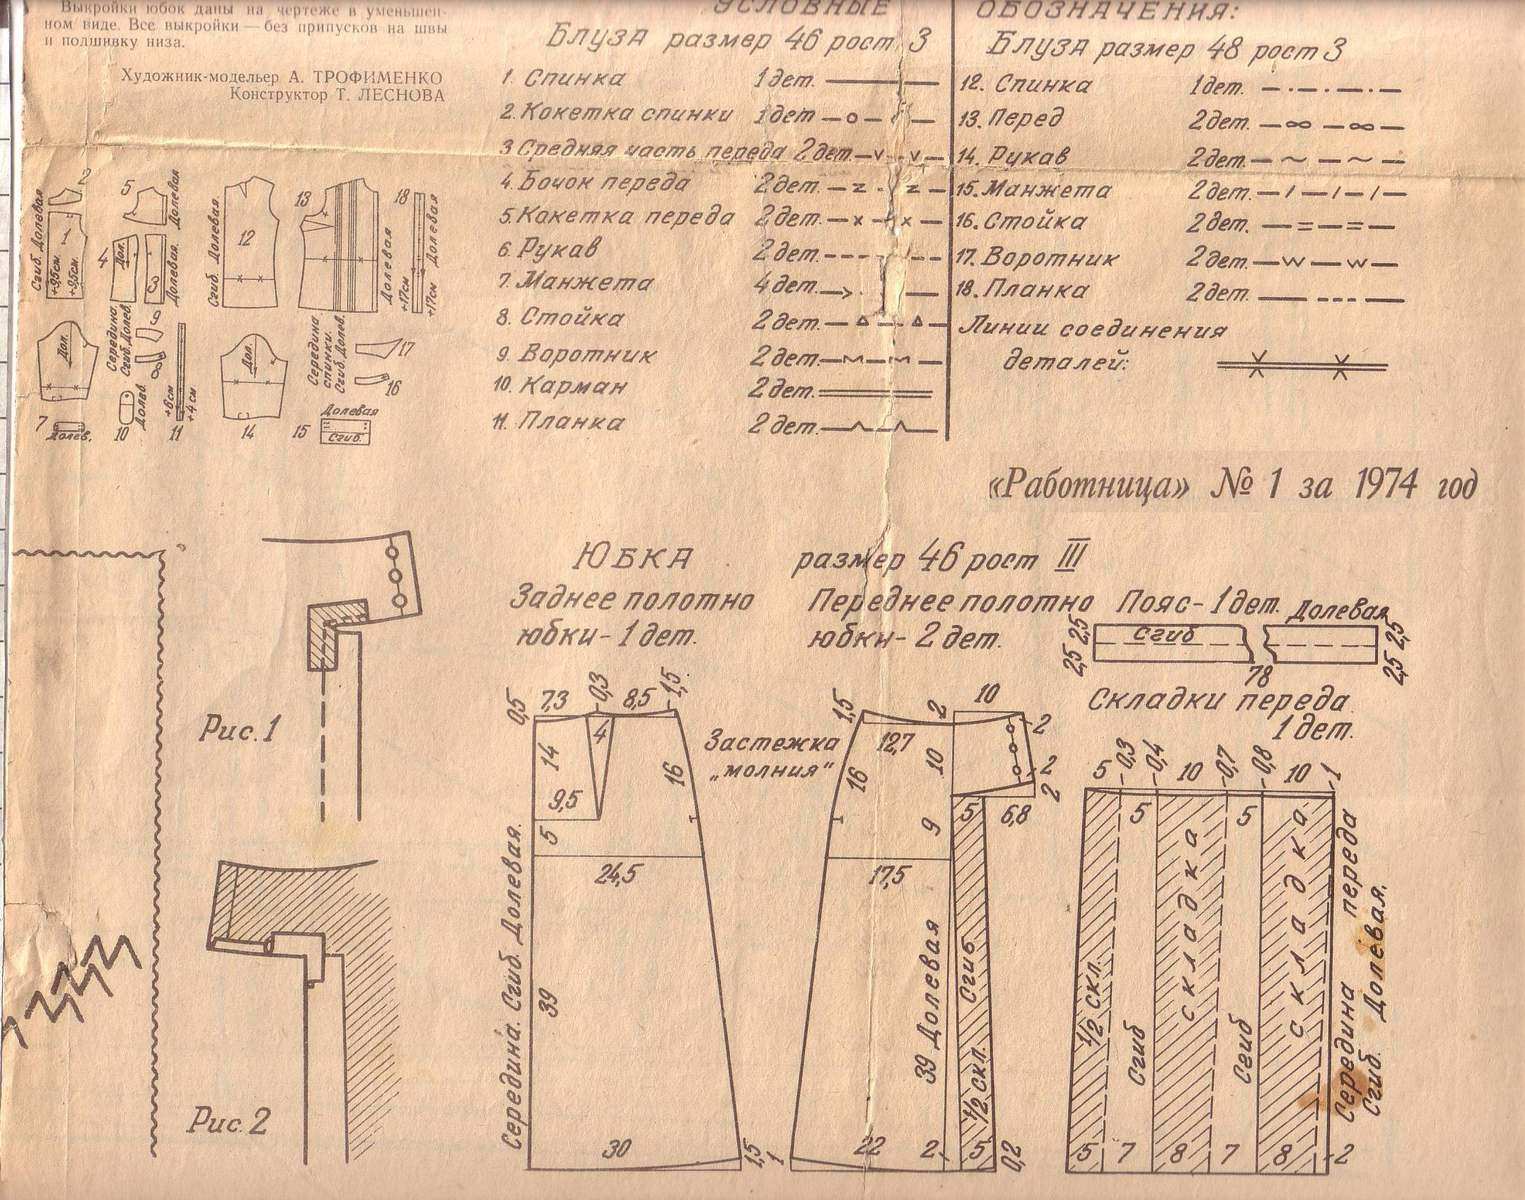 Выкройки юбок даны на чертеже в уменьшен-
ном виде. Все выкройки — без припусков на швы
и подшивку низа.
Художник-модельер А. ТРОФИМЕНКО
Конструктор Т. ЛЕСНОВА
УСЛОВНЫЕ ОБОЗНАЧЕНИЯ:
Блуза размер 46 рост 3
1. Спинка 1 дет.
2. Кокетка спинки 1 дет
3 Средняя часть переда 2 дет.
4. Бочок переда 2 дет.
5. Кокетка переда 2 дет.
6. Рукав 2 дет.
7. Манжета 4 дет.
8. Стойка 2 дет.
9. Воротник 2 дет.
10. Карман 2 дет.
11. Планка 2 дет.
Блуза размер 48 рост 3
12. Спинка 1 дет.
13. Перед 2 дет.
14. Рукав 2 дет.
15. Манжета 2 дет.
16. Стойка 2 дет.
17. Воротник 2 дет.
18. Планка 2 дет.
Линии соединения
деталей:
2
5
Долевая
Сгиб. Долевая
1
+9,5см.
+9,5см.
4
Дол.
Долевая.
Сгиб. Долевая.
12
13
Долевая
+17см
18
Долевая
+17см
Дол.
Середина
Сгиб. Долев.
9
8
7
Долев.
10
Долев.
11
+6см
+4см
Дол.
14
Середина
спинки.
Сгиб. Долев.
17
16
Долевая
15
Сгиб.
«Работница» № 1 за 1974 год
Рис. 1
Рис. 2
ЮБКА размер 46 рост III
Заднее полотно
юбки - 1 дет.
Переднее полотно
юбки - 2 дет.
Пояс - 1 дет. Долевая
2,5 2,5
Сгиб
2,5 2,5
78
Складки переда
1 дет.
0,5 7,3 0,3 8,5 1,5
4
14
9,5
5
16
24,5
39
30
1,5
Середина. Сгиб. Долевая.
Застежка
„молния“
1,5
2
10
12,7
16
10
2
2
2
9
5
6,8
17,5
39 Долевая
Сгиб
1/2 скл.
1
22
2
5
0,2
5
0,3
0,4
10
0,7
0,8
10
1
5
5
1/2 скл.
Сгиб
складка
Сгиб
складка
Середина переда
Сгиб. Долевая.
5
7
8
7
8
2